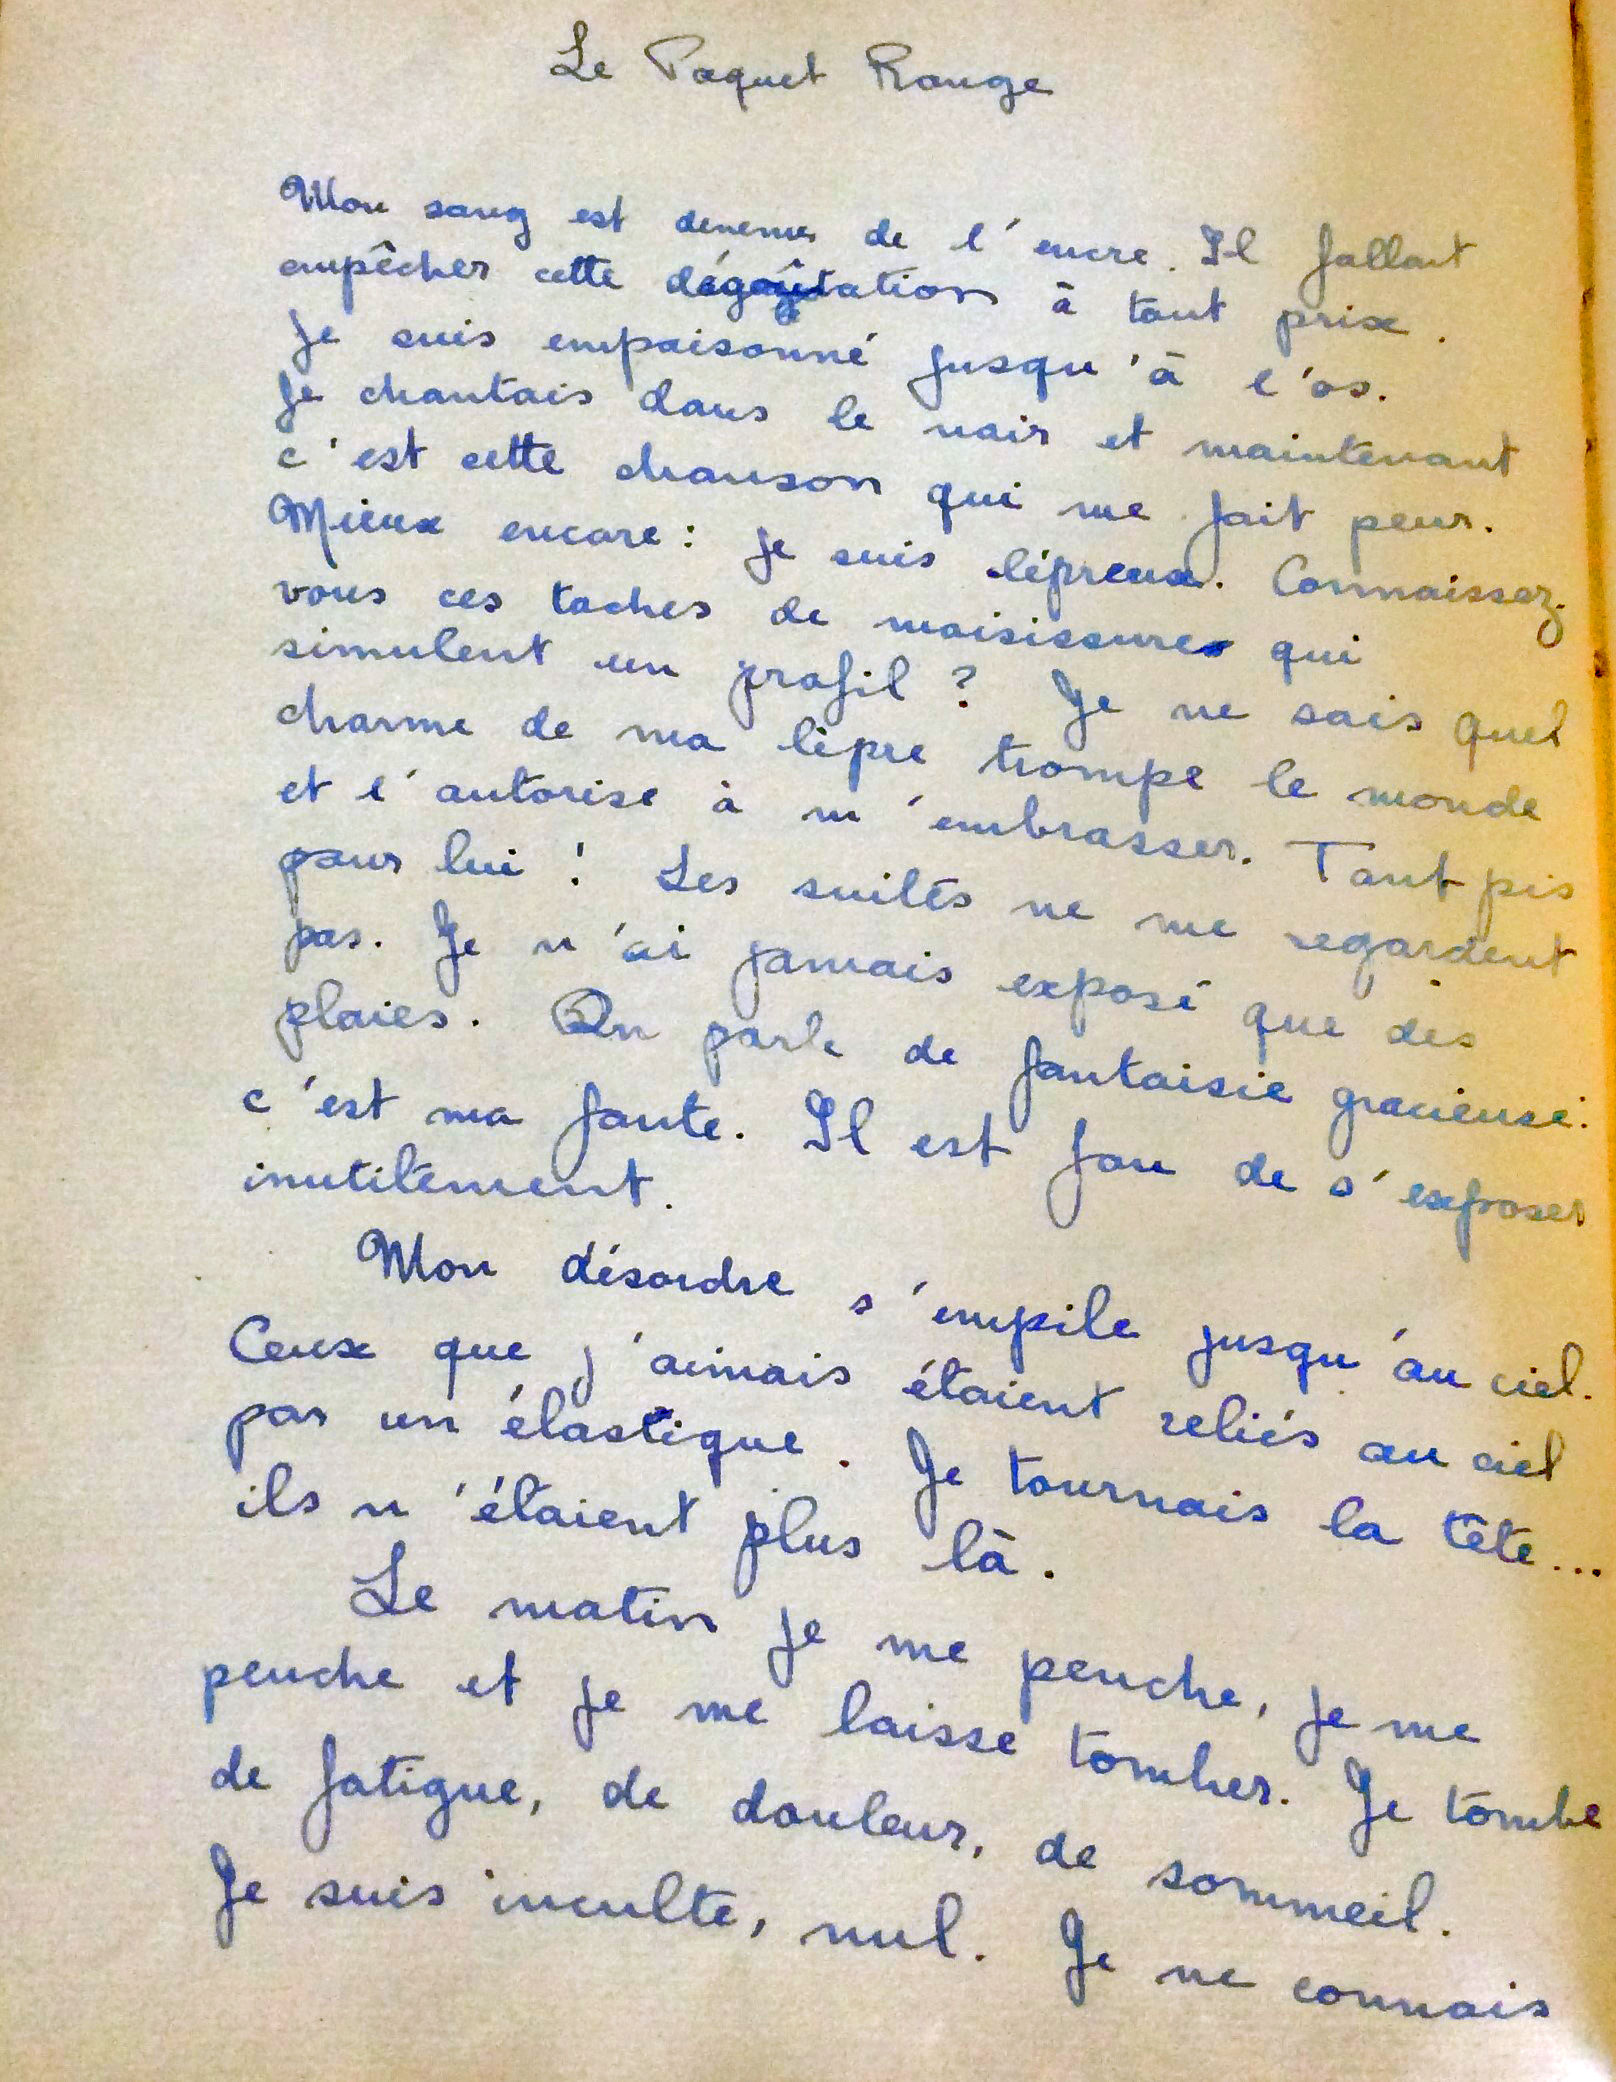 Le Paquet Rouge
Mon sang est devenu de l'encre. Il fallait
empêcher cette dégoûtation à tout prix.
Je suis empoisonné jusqu'à l'os.
Je chantais dans le noir et maintenant
c'est cette chanson qui me fait peur.
Mieux encore : je suis lépreux. Connaissez-
vous ces taches de moisissures qui
simulent un profil ? Je ne sais quel
charme de ma lèpre trompe le monde
et l'autorise à m'embrasser. Tant pis
pour lui ! Les suites ne me regardent
pas. Je n'ai jamais exposé que des
plaies. On parle de fantaisie gracieuse :
c'est ma faute. Il est fou de s'exposer
inutilement.
Mon désordre s'empile jusqu'au ciel.
Ceux que j'aimais étaient reliés au ciel
par un élastique. Je tournais la tête...
ils n'étaient plus là.
Le matin je me penche, je me
penche et je me laisse tomber. Je tombe
de fatigue, de douleur, de sommeil.
Je suis inculte, nul. Je ne connais